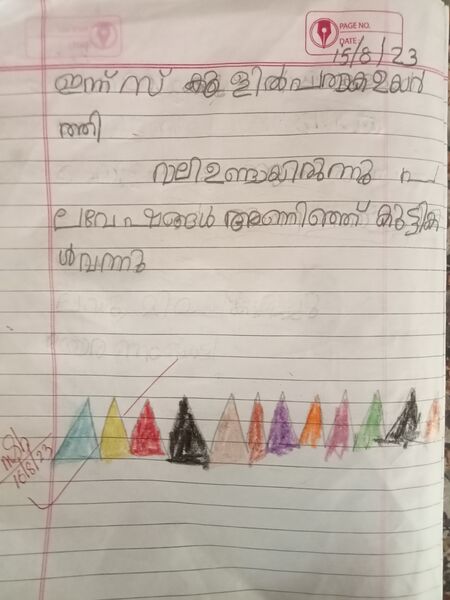 PAGE NO.
DATE: 15/8/23
ഇന്ന് സ്കൂളിൽ പതാക ഉയർ
ത്തി
റാലി ഉണ്ടായിരുന്നു പ
ല വേഷങ്ങൾ അണിഞ്ഞ് കുട്ടിക
ൾ വന്നു
15/8/23